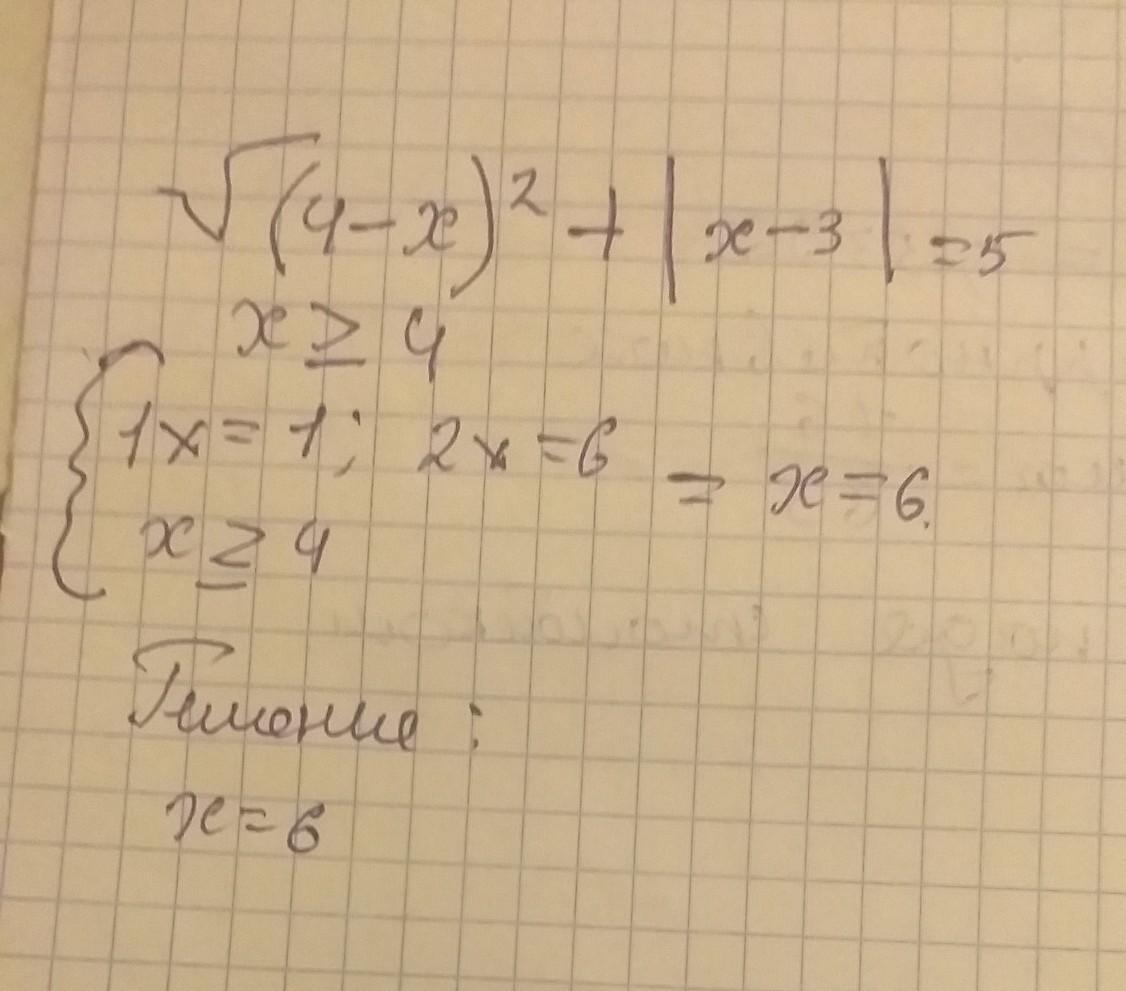 √(4-x)² + |x-3| = 5
x ≥ 4
{ 1x = 1; 2x = 6 = x = 6.
x ≥ 4
Решение :
x = 6